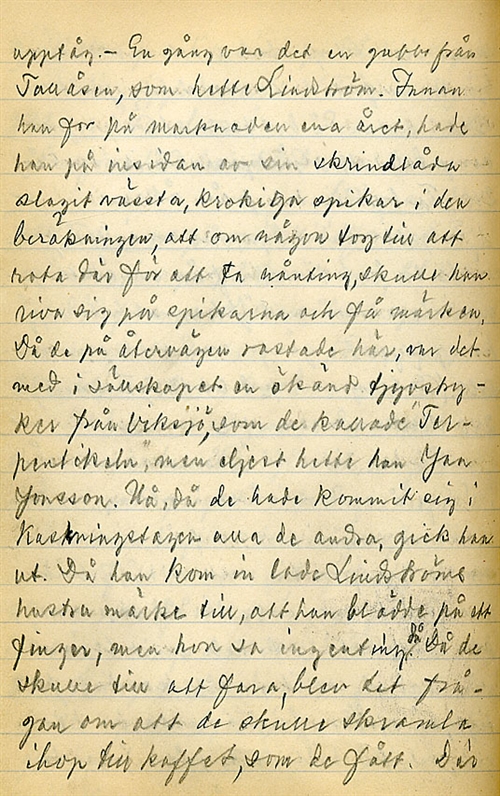 upptåg. — En gång var det en gubbe från
Tallåsen, som hette Lindström. Innan
han for på marknaden ena året, hade
han på insidan av sin skrindlåda
slagit vässta, krokiga spikar i den
beräkningen, att om någon tog till att
rota där för att ta nånting, skulle han
riva sig på spikarna och få märken.
Då de på återvägen rastade här, var det
med i sällskapet en ökänd tjyvstry-
ker från Viksjö, som de kallade "Ter-
pentikeln", men eljest hette han Jan
Jonsson. Nå, då de hade kommit sig i
alla de andra, gick han
ut. Då han kom in lade Lindströms
hustru märke till, att han blödde på ett
finger, men hon sa ingenting då. Då de
skulle till att fara, blev det frå-
gan om att de skulle skramla
ihop till kaffet, som de fått. Där